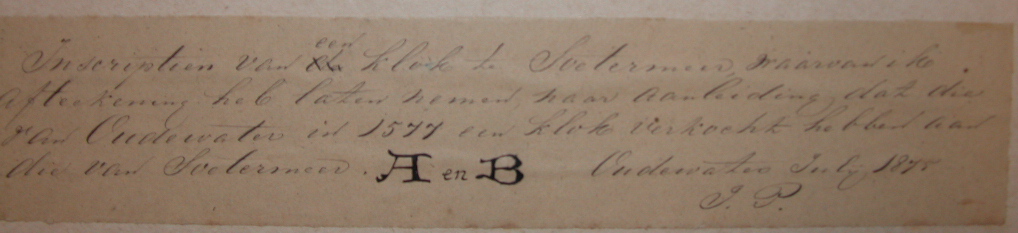 Inscriptien van een klok te Soetermeer, waarvan ik
afteekening heb laten nemen, naar aanleiding dat die
van Oudewater in 1577 een klok verkocht hebben aan
die van Soetermeer. A en B Oudewater July
J. P.